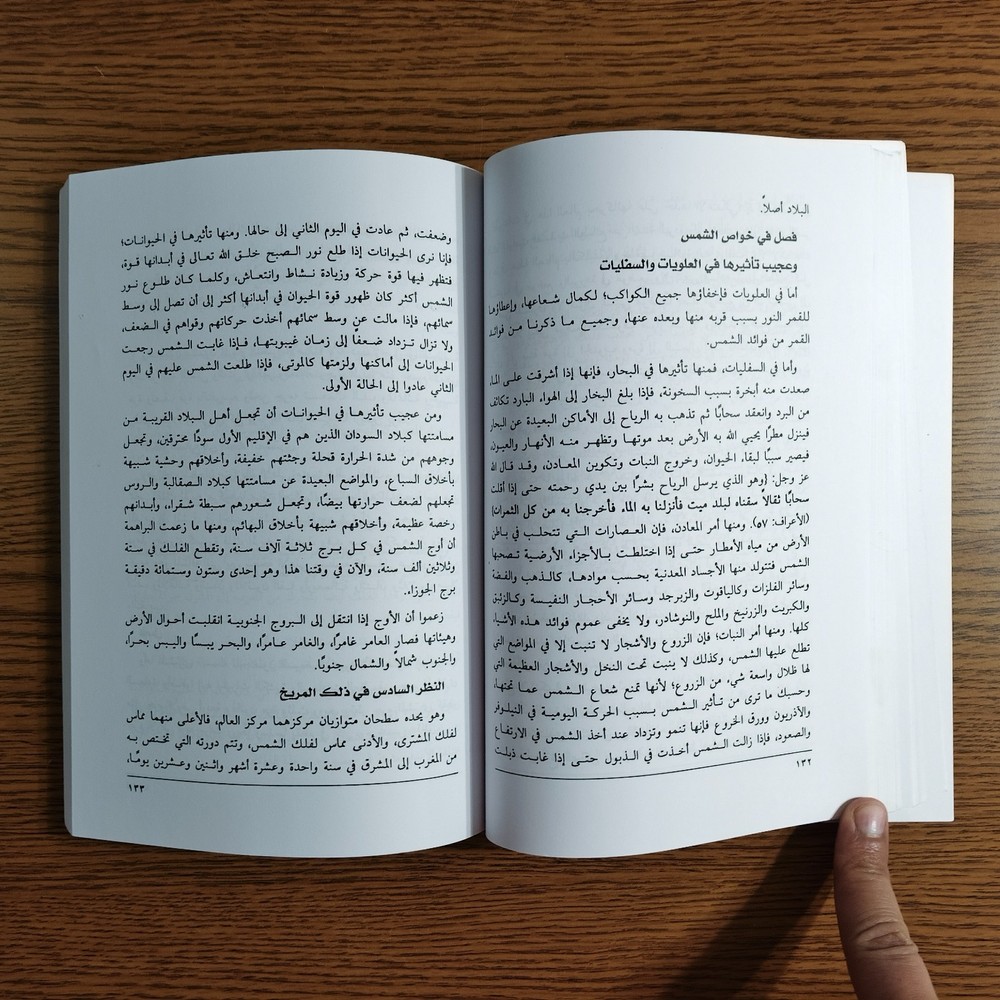 البلاد أصلاً.
فصل في خواص الشمس
وعجيب تأثيرها في العلويات والسفليات
أما في العلويات فإخفاؤها جميع الكواكب؛ لكمال شعاعها، وإعطاؤها
للقمر النور بسبب قربه منها وبعده عنها، وجميع ما ذكرنا من فوائد
القمر من فوائد الشمس.
وأما في السفليات، فمنها تأثيرها في البحار، فإنها إذا أشرقت على الماء
صعدت منه أبخرة بسبب السخونة، فإذا بلغ البخار إلى الهواء البارد تكاثف
من البرد وانعقد سحابًا ثم تذهب به الرياح إلى الأماكن البعيدة عن البحار
فينزل مطرًا يحيي الله به الأرض بعد موتها وتظهر منه الأنهار والعيون
فيصير سببًا لبقاء الحيوان، وخروج النبات وتكوين المعادن، وقد قال الله
عز وجل: {وهو الذي يرسل الرياح بشرًا بين يدي رحمته حتى إذا أقلت
سحابًا ثقالاً سقناه لبلد ميت فأنزلنا به الماء فأخرجنا به من كل الثمرات}
(الأعراف: ٥٧). ومنها أمر المعادن، فإن العصارات التي تتحلب في باطن
الأرض من مياه الأمطار حتى إذا اختلطت بالأجزاء الأرضية تصحبها
الشمس فتتولد منها الأجساد المعدنية بحسب موادها، كالذهب والفضة
وسائر الفلزات وكالياقوت والزبرجد وسائر الأحجار النفيسة وكالزئبق
والكبريت والزرنيخ والملح والنوشادر، ولا يخفى عموم فوائد هذه الأشياء
كلها. ومنها أمر النبات؛ فإن الزروع والأشجار لا تنبت إلا في المواضع التي
تطلع عليها الشمس، وكذلك لا ينبت تحت النخل والأشجار العظيمة التي
لها ظلال واسعة شيء من الزروع؛ لأنها تمنع شعاع الشمس عما تحتها،
وحسبك ما ترى من تأثير الشمس بسبب الحركة اليومية في النيلوفر
والآذريون وورق الخروع فإنها تنمو وتزداد عند أخذ الشمس في الارتفاع
والصعود، فإذا زالت الشمس أخذت في الذبول حتى إذا غابت ذبلت
١٣٢
وضعفت، ثم عادت في اليوم الثاني إلى حالها. ومنها تأثيرها في الحيوانات؛
فإنا نرى الحيوانات إذا طلع نور الصبح خلق الله تعالى في أبدانها قوة،
فتظهر فيها قوة حركة وزيادة نشاط وانتعاش، وكلما كان طلوع نور
الشمس أكثر كان ظهور قوة الحيوان في أبدانها أكثر إلى أن تصل إلى وسط
سمائهم، فإذا مالت عن وسط سمائهم أخذت حركاتهم وقواهم في الضعف،
ولا تزال تزداد ضعفًا إلى زمان غيبوبتها، فإذا غابت الشمس رجعت
الحيوانات إلى أماكنها ولزمتها كالموتى، فإذا طلعت الشمس عليهم في اليوم
الثاني عادوا إلى الحالة الأولى.
ومن عجيب تأثيرها في الحيوانات أن تجعل أهل البلاد القريبة من
مسامتتها كبلاد السودان الذين هم في الإقليم الأول سودًا محترقين، وتجعل
وجوههم من شدة الحرارة قحلة وجثتهم خفيفة، وأخلاقهم وحشية شبيهة
بأخلاق السباع، والمواضع البعيدة عن مسامتتها كبلاد الصقالبة والروس
تجعلهم لضعف حرارتها بيضًا، وتجعل شعورهم سبطة شقراء، وأبدانهم
رخصة عظيمة، وأخلاقهم شبيهة بأخلاق البهائم، ومنها ما زعمت البراهمة
أن أوج الشمس في كل برج ثلاثة آلاف سنة، وتقطع الفلك في ستة
وثلاثين ألف سنة، والآن في وقتنا هذا وهو إحدى وستون وستمائة دقيقة
برج الجوزاء.
زعموا أن الأوج إذا انتقل إلى البروج الجنوبية انقلبت أحوال الأرض
وهيئاتها فصار العامر غامرًا، والغامر عامرًا، والبحر يبسًا واليبس بحرًا،
والجنوب شمالاً والشمال جنوبًا.
النظر السادس في ذلك المريخ
وهو يحده سطحان متوازيان مركزهما مركز العالم، فالأعلى منهما مماس
لفلك المشترى، والأدنى مماس لفلك الشمس، وتتم دورته التي تختص به
من المغرب إلى المشرق في سنة واحدة وعشرة أشهر واثنين وعشرين يومًا،
١٣٣